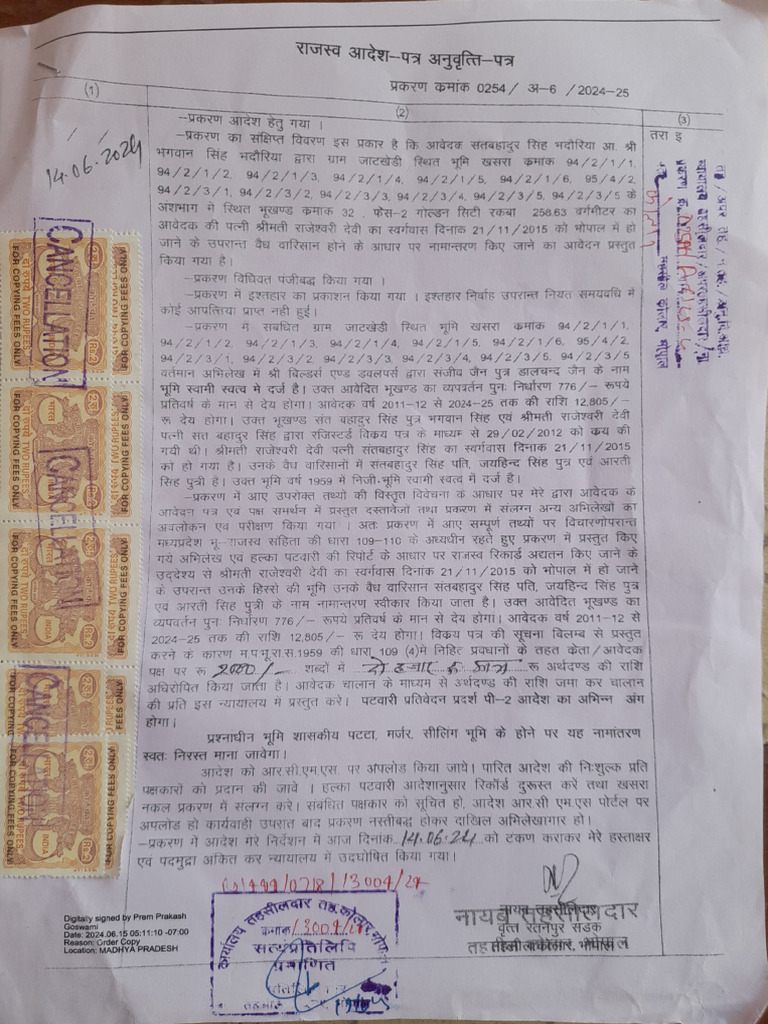 राजस्व आदेश–पत्र अनुवृत्ति–पत्र
प्रकरण कमांक 0254 / अ–6 / 2024-25
(1)
(2)
(3)
14.06.2024
–प्रकरण आदेश हेतु गया ।
–प्रकरण का संक्षिप्त विवरण इस प्रकार है कि आवेदक संतबहादुर सिंह भदौरिया आ. श्री
भगवान सिंह भदौरिया द्वारा ग्राम जाटखेडी स्थित भूमि खसरा कमांक 94/2/1/1,
94/2/1/2, 94/2/1/3, 94/2/1/4, 94/2/1/5, 94/2/1/6, 95/4/2,
94/2/3/1, 94/2/3/2, 94/2/3/3, 94/2/3/4, 94/2/3/5, 94/2/3/5 के
अंशभाग में स्थित भूखण्ड कमाक 32 , फेस–2 गोल्डन सिटी रकबा 258.63 वर्गमीटर का
आवेदक की पत्नी श्रीमती राजेश्वरी देवी का स्वर्गवास दिनाक 21/11/2015 को भोपाल में हो
जाने के उपरान्त वैध वारिसान होने के आधार पर नामान्तरण किए जाने का आवेदन प्रस्तुत
किया गया है।
–प्रकरण विधिवत पंजीबद्व किया गया ।
–प्रकरण में इश्तहार का प्रकाशन किया गया । इश्तहार निर्वाह उपरान्त नियत समयवधि में
कोई आपत्तिया प्राप्त नही हुई।
–प्रकरण में सबधित ग्राम जाटखेडी स्थित भूमि खसरा कमांक 94/2/1/1,
94/2/1/2, 94/2/1/3, 94/2/1/4, 94/2/1/5, 94/2/1/6, 95/4/2,
94/2/3/1, 94/2/3/2, 94/2/3/3, 94/2/3/4, 94/2/3/5, 94/2/3/5
वर्तमान अभिलेख में श्री बिल्डर्स एण्ड डवलपर्स द्वारा संजीव जैन पुत्र डालचन्द जैन के नाम
भूमि स्वामी स्वत्व मे दर्ज है। उक्त आवेदित भूखण्ड का व्यपवर्तन पुनः निर्धारण 776/– रूपये
प्रतिवर्ष के मान से देय होगा। आवेदक वर्ष 2011-12 से 2024-25 तक की राशि 12,805/–
रू देय होगा। उक्त भूखण्ड संत बहादुर सिंह पुत्र भगवान सिंह एवं श्रीमती राजेश्वरी देवी
पत्नी सत बहादुर सिंह द्वारा रजिस्टर्ड विकय पत्र के माध्यम से 29/02/2012 को कय की
गयी थी। श्रीमती राजेश्वरी देवी पत्नी संतबहादुर सिंह का स्वर्गवास दिनाक 21/11/2015
को हो गया है। उनके वैध वारिसानों में संतबहादुर सिंह पति, जयहिन्द सिंह पुत्र एवं आरती
सिंह पुत्री है। उक्त भूमि वर्ष 1959 में निजी भूमि स्वामी स्वत्व में दर्ज है।
–प्रकरण में आए उपरोक्त तथ्यो की विस्तृत विवेचना के आधार पर मेरे द्वारा आवेदक के
आवेदन पत्र एवं पक्ष समर्थन में प्रस्तुत दस्तावेजों तथा प्रकरण में संलग्न अन्य अभिलेखों का
अवलोकन एवं परीक्षण किया गया । अतः प्रकरण में आए सम्पूर्ण तथ्यों पर विचारणोपरान्त
मध्यप्रदेश भू–राजस्व संहिता की धारा 109–110 के अध्यधीन रहते हुए प्रकरण में प्रस्तुत किए
गये अभिलेख एवं हल्का पटवारी की रिपोर्ट के आधार पर राजस्व रिकार्ड अद्यतन किए जाने के
उद्देश्य से श्रीमती राजेश्वरी देवी का स्वर्गवास दिनांक 21/11/2015 को भोपाल में हो जाने
के उपरान्त उनके हिस्से की भूमि उनके वैध वारिसान संतबहादुर सिंह पति, जयहिन्द सिंह पुत्र
एवं आरती सिंह पुत्री के नाम नामान्तरण स्वीकार किया जाता है। उक्त आवेदित भूखण्ड का
व्यपवर्तन पुनः निर्धारण 776/– रूपये प्रतिवर्ष के मान से देय होगा। आवेदक वर्ष 2011-12 से
2024-25 तक की राशि 12,805/– रू देय होगा। विकय पत्र की सूचना बिलम्ब से प्रस्तुत
करने के कारण म.प.भू.रा.स.1959 की धारा 109 (4)मे निहित प्रवधानों के तहत केता/आवेदक
पक्ष पर रू 2000/– शब्दों में दो हजार रू मात्र रू अर्थदण्ड की राशि
अधिरोपित किया जाता है। आवेदक चालान के माध्यम से अर्थदण्ड की राशि जमा कर चालान
की प्रति इस न्यायालय में प्रस्तुत करे। पटवारी प्रतिवेदन प्रदर्श पी–2 आदेश का अभिन्न अंग
होगा।
प्रश्नाधीन भूमि शासकीय पटटा, मर्जर, सीलिंग भूमि के होने पर यह नामांतरण
स्वतः निरस्त माना जावेगा।
आदेश को आर.सी.एम.एस. पर अपलोड किया जाये। पारित आदेश की निःशुल्क प्रति
पक्षकारों को प्रदान की जावे । हल्का पटवारी आदेशानुसार रिकॉर्ड दुरूस्त करे तथा खसरा
नकल प्रकरण में संलग्न करे। सबंधित पक्षकार को सूचित हो, आदेश आर सी एम एस पोर्टल पर
अपलोड हो कार्यवाही उपरात बाद प्रकरण नस्तीबद्ध होकर दाखिल अभिलेखागार हो।
–प्रकरण में आदेश मेरे निर्देशन में आज दिनांक 14.06.24 को टकण कराकर मेरे हस्ताक्षर
एवं पदमुद्रा अंकित कर न्यायालय में उदघोषित किया गया।
तरा इ
CANCELLATION
CANCELLATION
CANCELLATION
दो रुपये TWO RUPEES
FOR COPYING FEES ONLY
भारत
INDIA
Rs.2
Digitally signed by Prem Prakash
Goswami
Date: 2024.06.15 05:11:10 -07:00
Reason: Order Copy
Location: MADHYA PRADESH
कार्यालय तहसीलदार तह.कोलार भोपाल
सत्यप्रतिलिपि
प्रमाणित
नायब तहसीलदार
वृत्त रतनपुर सडक